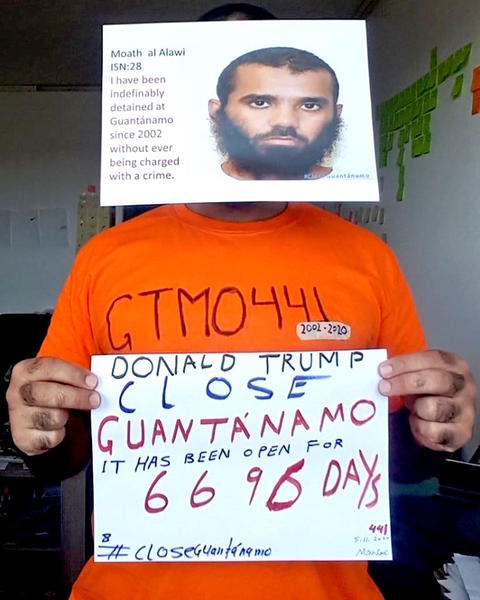 Moath al Alawi
ISN:28
I have been
indefinably
detained at
Guantánamo
since 2002
without ever
being charged
with a crime.
GTMO441
2002-2020
DONALD TRUMP
CLOSE
GUANTÁNAMO
IT HAS BEEN OPEN FOR
6696 DAYS
441
8
#CloseGuantánamo